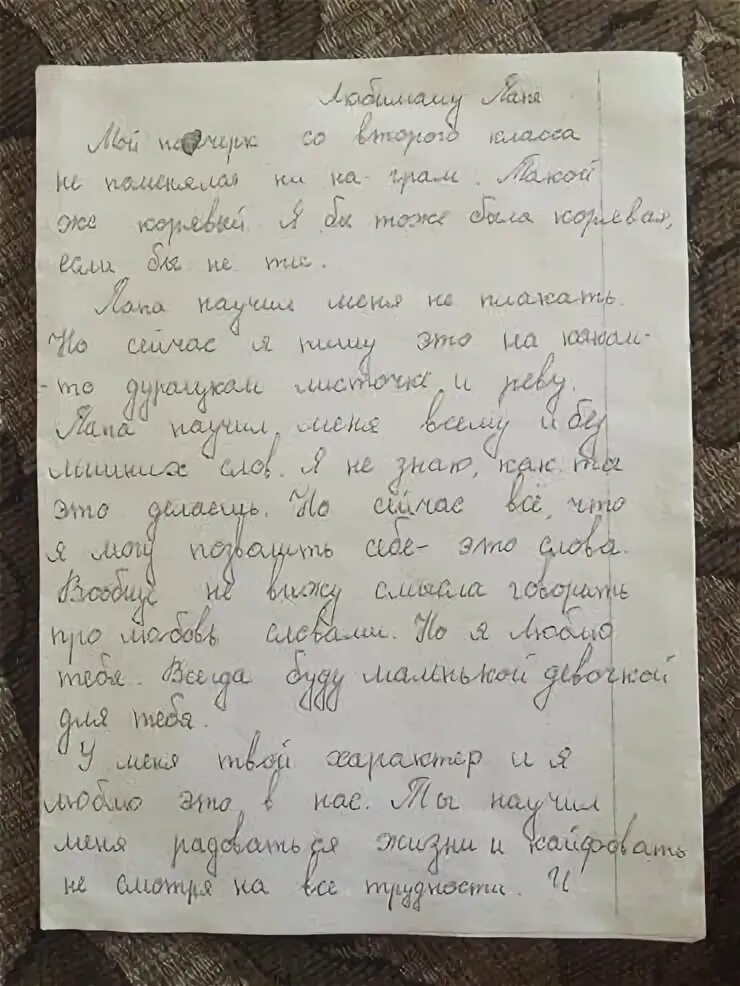 Любимаму Папе
Мой почерк со второго класса
не поменялая ни на-грам. Такой
же корявый. Я бы тоже была корявая,
если бы не ты.
Папа научил меня не плакать.
Но сейчас я пишу это на каком-
-то дурацкам листочке и реву.
Папа научил меня всему и без
лишних слов. Я не знаю, как ты
это делаешь. Но сейчас всё, что
я могу позволить себе- это слова.
Вообще не вижу смысла говорать
про любовь словами. Но я люблю
тебя. Всегда буду маленькой девочкой
для тебя.
У меня твой характер и я
люблю это в нас. Ты научил
меня радоваться жизни и кайфовать
не смотря на все трудности. И